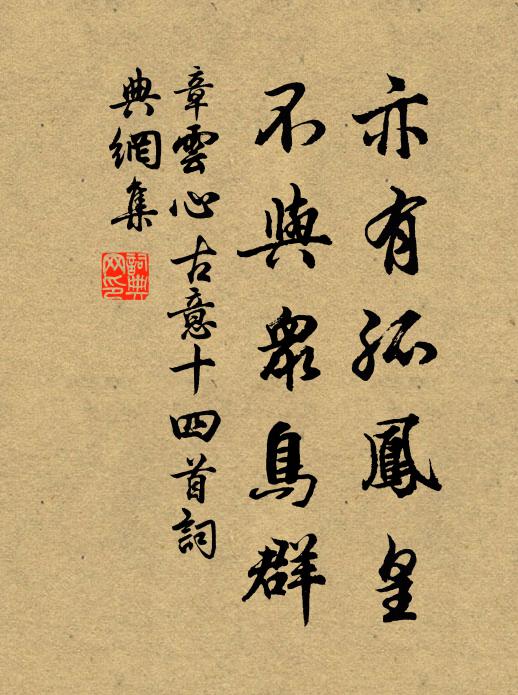 亦有孤鳳皇
不與眾鳥群
章雲心古意十四首詞
典網集
詞典
网印